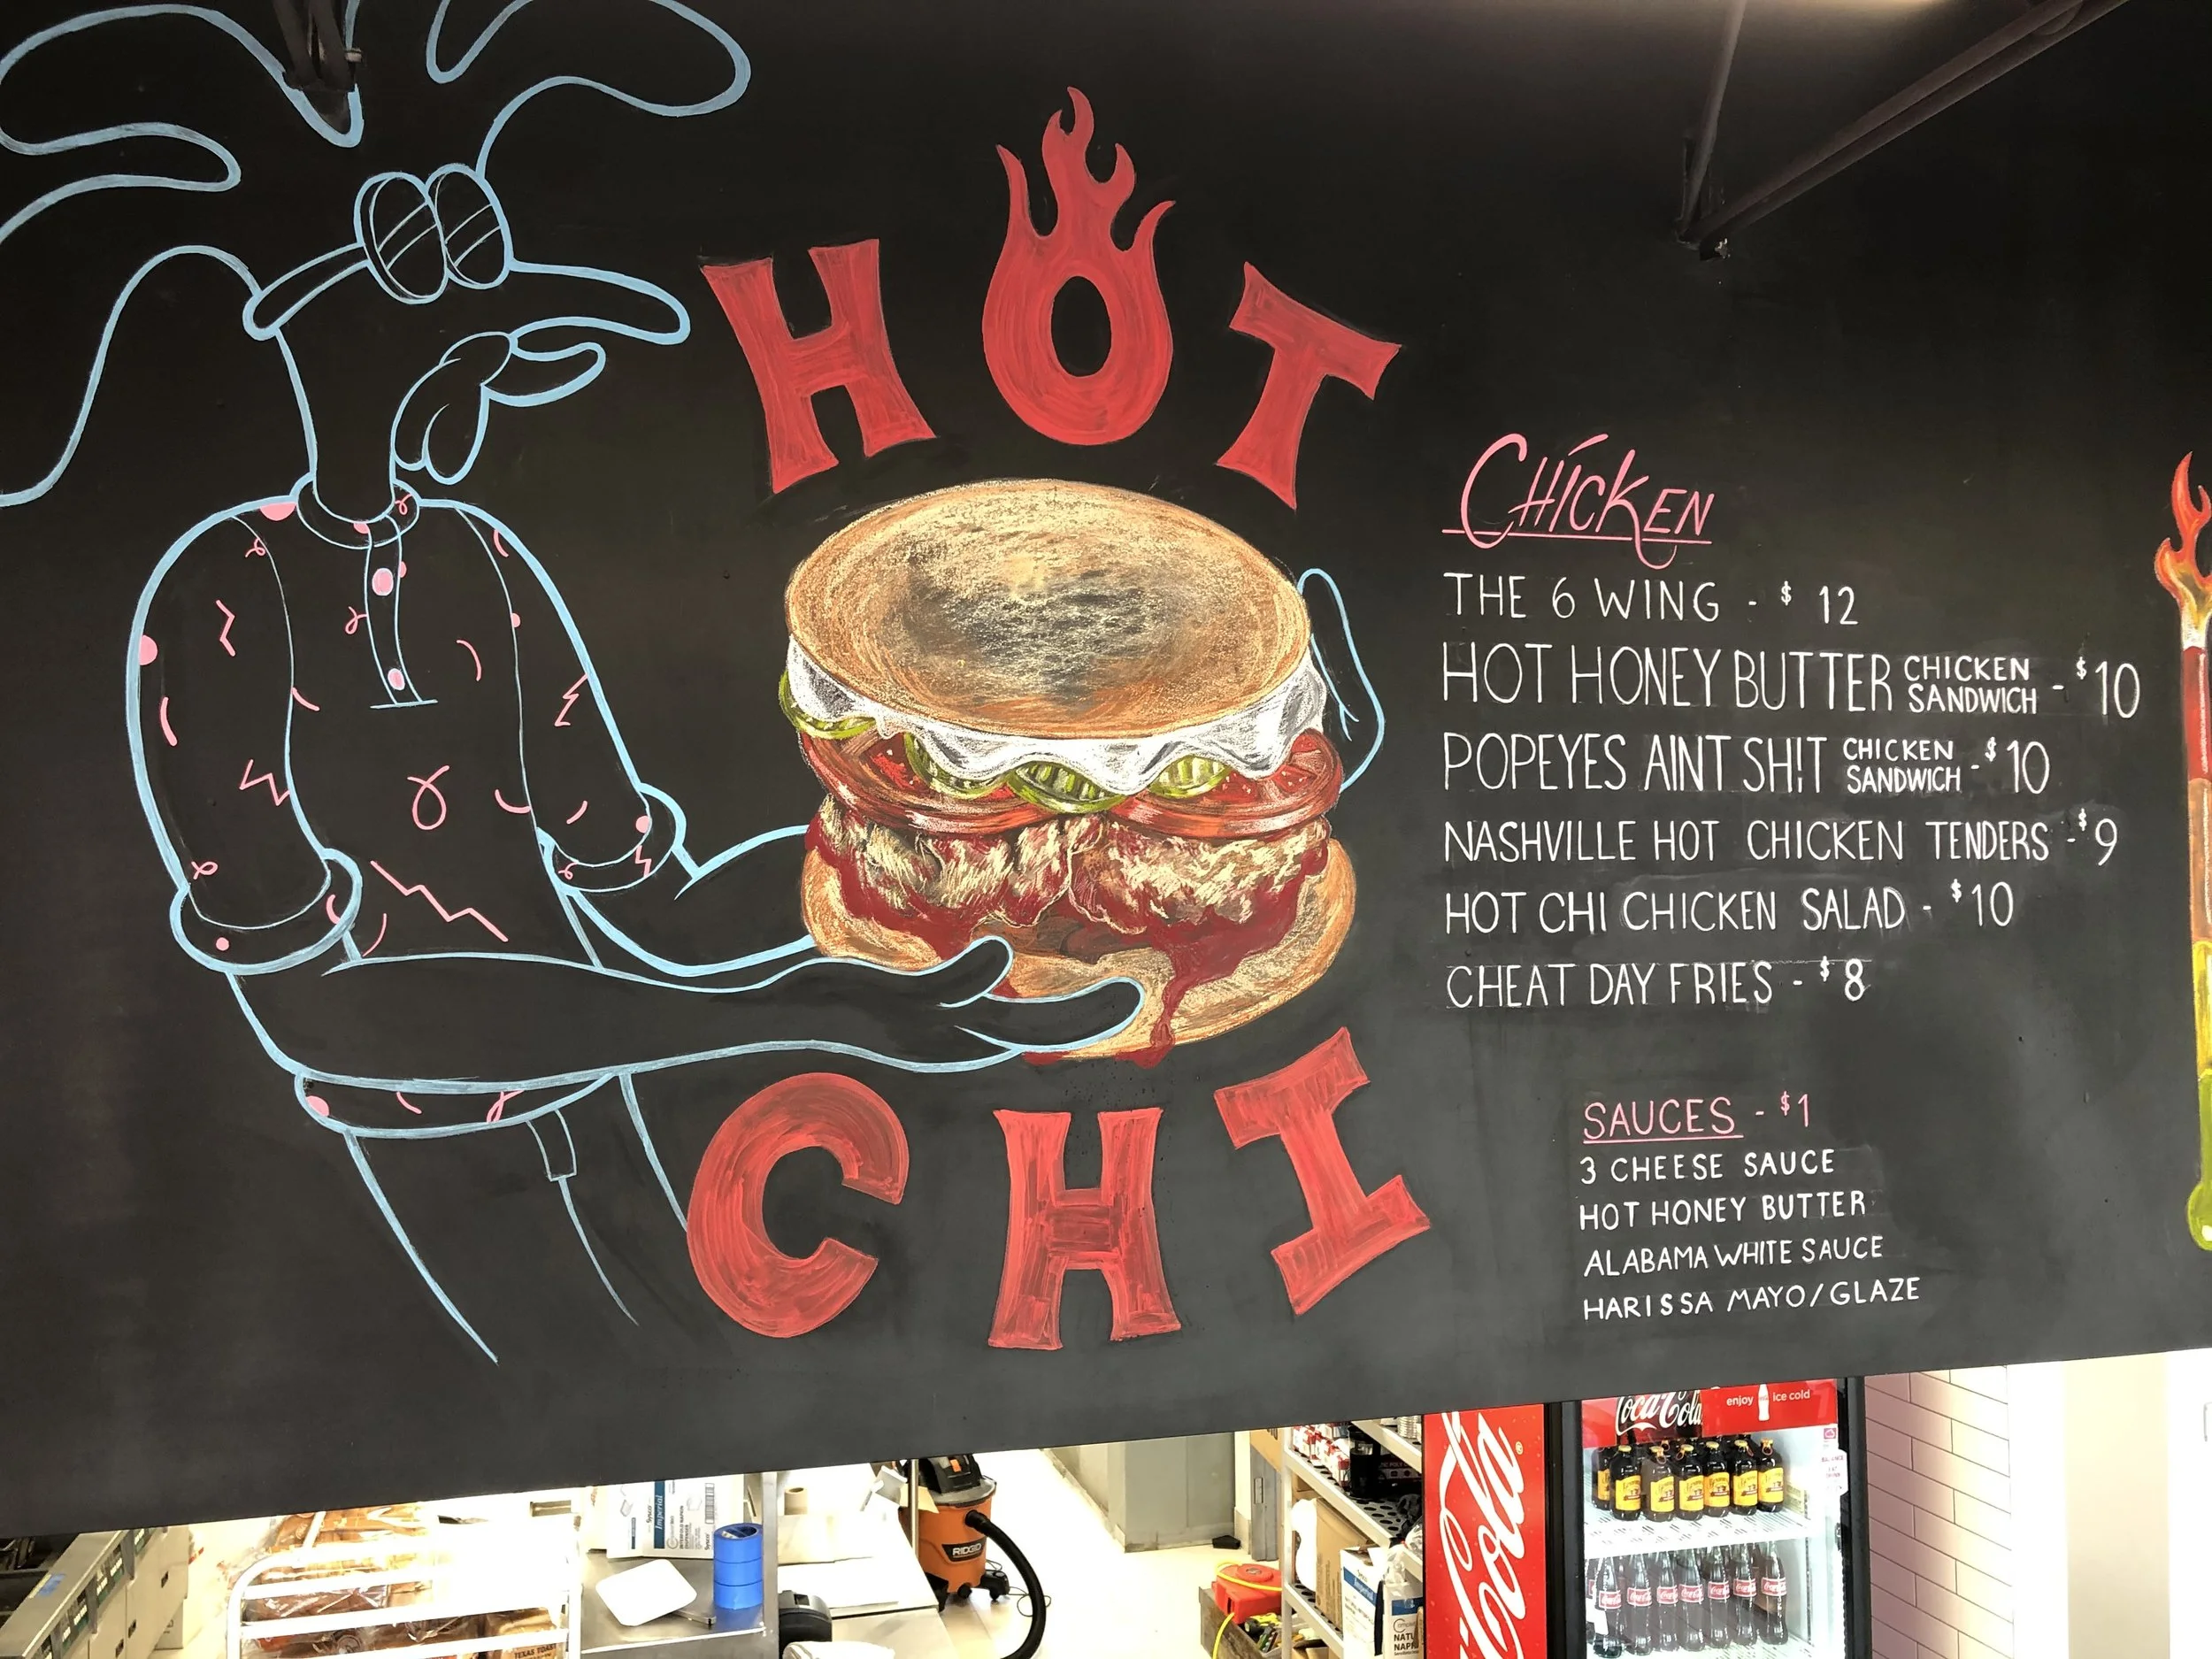 HOT
CHI
CHICKEN
THE 6 WING - $12
HOT HONEY BUTTER CHICKEN SANDWICH - $10
POPEYES AINT SH!T CHICKEN SANDWICH - $10
NASHVILLE HOT CHICKEN TENDERS - $9
HOT CHI CHICKEN SALAD - $10
CHEAT DAY FRIES - $8
SAUCES - $1
3 CHEESE SAUCE
HOT HONEY BUTTER
ALABAMA WHITE SAUCE
HARISSA MAYO/GLAZE
Coca-Cola
enjoy ice cold
Coca-Cola
RIDGID
Imperial
TEXAS TOAST